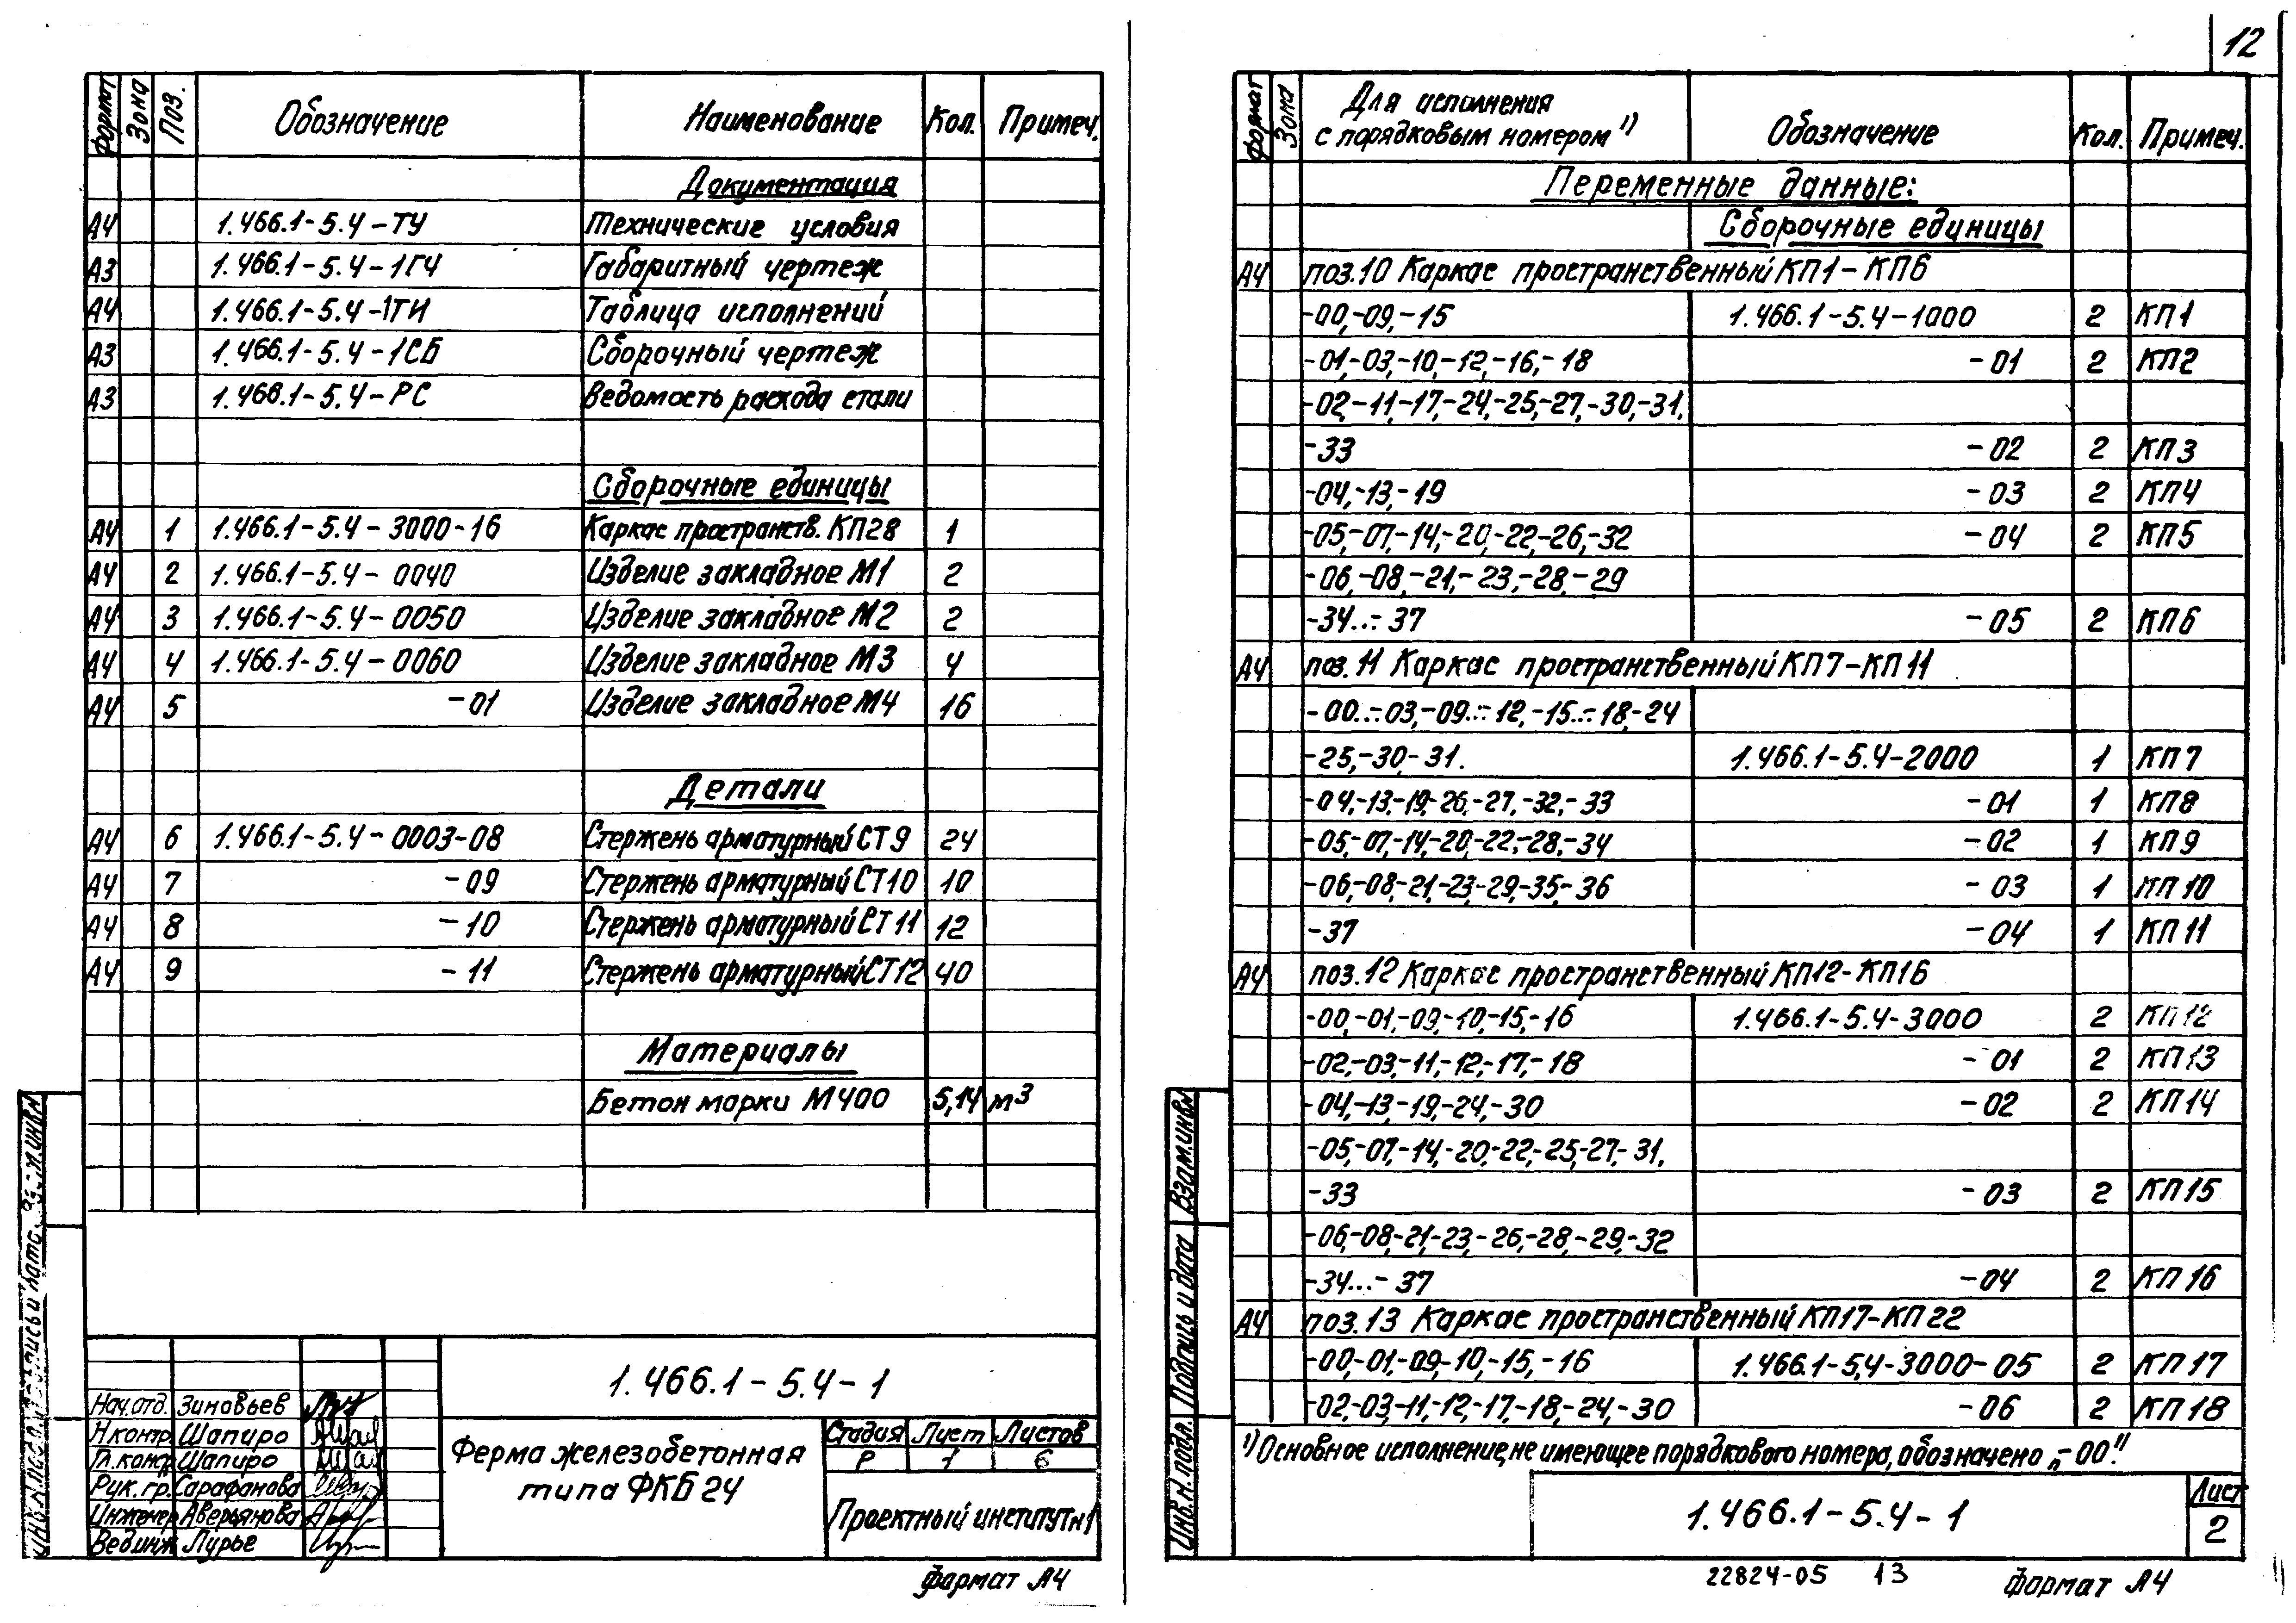 12
Формат Зона Поз. Обозначение Наименование Кол. Примеч.
Документация
А4 1.466.1-5.4-ТУ Технические условия
А3 1.466.1-5.4-1ГЧ Габаритный чертеж
А4 1.466.1-5.4-1ТИ Таблица исполнений
А3 1.466.1-5.4-1СБ Сборочный чертеж
А3 1.466.1-5.4-РС Ведомость расхода стали
Сборочные единицы
А4 1 1.466.1-5.4-3000-16 Каркас пространств. КП28 1
А4 2 1.466.1-5.4-0040 Изделие закладное М1 2
А4 3 1.466.1-5.4-0050 Изделие закладное М2 2
А4 4 1.466.1-5.4-0060 Изделие закладное М3 4
А4 5 -01 Изделие закладное М4 16
Детали
А4 6 1.466.1-5.4-0003-08 Стержень арматурный СТ9 24
А4 7 -09 Стержень арматурный СТ10 10
А4 8 -10 Стержень арматурный СТ11 12
А4 9 -11 Стержень арматурный СТ12 40
Материалы
Бетон марки М400 5,14 м3
1.466.1-5.4-1
Нач.отд. Зиновьев
Н.контр. Шапиро
Гл.констр. Шапиро
Рук.гр. Сарафанова
Инженер Аверьянова
Вед.инж. Лурье
Ферма железобетонная
типа ФКБ24
Стадия Лист Листов
Р 1 6
Проектный институт н1
Формат А4
Формат Зона Для исполнения с порядковым номером 1) Обозначение Кол. Примеч.
Переменные данные:
Сборочные единицы
А4 поз.10 Каркас пространственный КП1-КП6
-00,-09,-15 1.466.1-5.4-1000 2 КП1
-01,-03,-10,-12,-16,-18 -01 2 КП2
-02,-11,-17,-24,-25,-27,-30,-31,
-33 -02 2 КП3
-04,-13,-19 -03 2 КП4
-05,-07,-14,-20,-22,-26,-32 -04 2 КП5
-06,-08,-21,-23,-28,-29
-34...-37 -05 2 КП6
А4 поз.11 Каркас пространственный КП7-КП11
-00...-03,-09...-12,-15...-18,-24
-25,-30,-31. 1.466.1-5.4-2000 1 КП7
-04,-13,-19,-26,-27,-32,-33 -01 1 КП8
-05,-07,-14,-20,-22,-28,-34 -02 1 КП9
-06,-08,-21,-23,-29,-35,-36 -03 1 КП10
-37 -04 1 КП11
А4 поз.12 Каркас пространственный КП12-КП16
-00,-01,-09,-10,-15,-16 1.466.1-5.4-3000 2 КП12
-02,-03,-11,-12,-17,-18 -01 2 КП13
-04,-13,-19,-24,-30 -02 2 КП14
-05,-07,-14,-20,-22,-25,-27,-31,
-33 -03 2 КП15
-06,-08,-21,-23,-26,-28,-29,-32
-34...-37 -04 2 КП16
А4 поз.13 Каркас пространственный КП17-КП22
-00,-01,-09,-10,-15,-16 1.466.1-5.4-3000-05 2 КП17
-02,-03,-11,-12,-17,-18,-24,-30 -06 2 КП18
1) Основное исполнение, не имеющее порядкового номера, обозначено „-00".
1.466.1-5.4-1
Лист
2
Инв.н.подл. Подпись и дата Взам.инв.н
22824-05 13
Формат А4